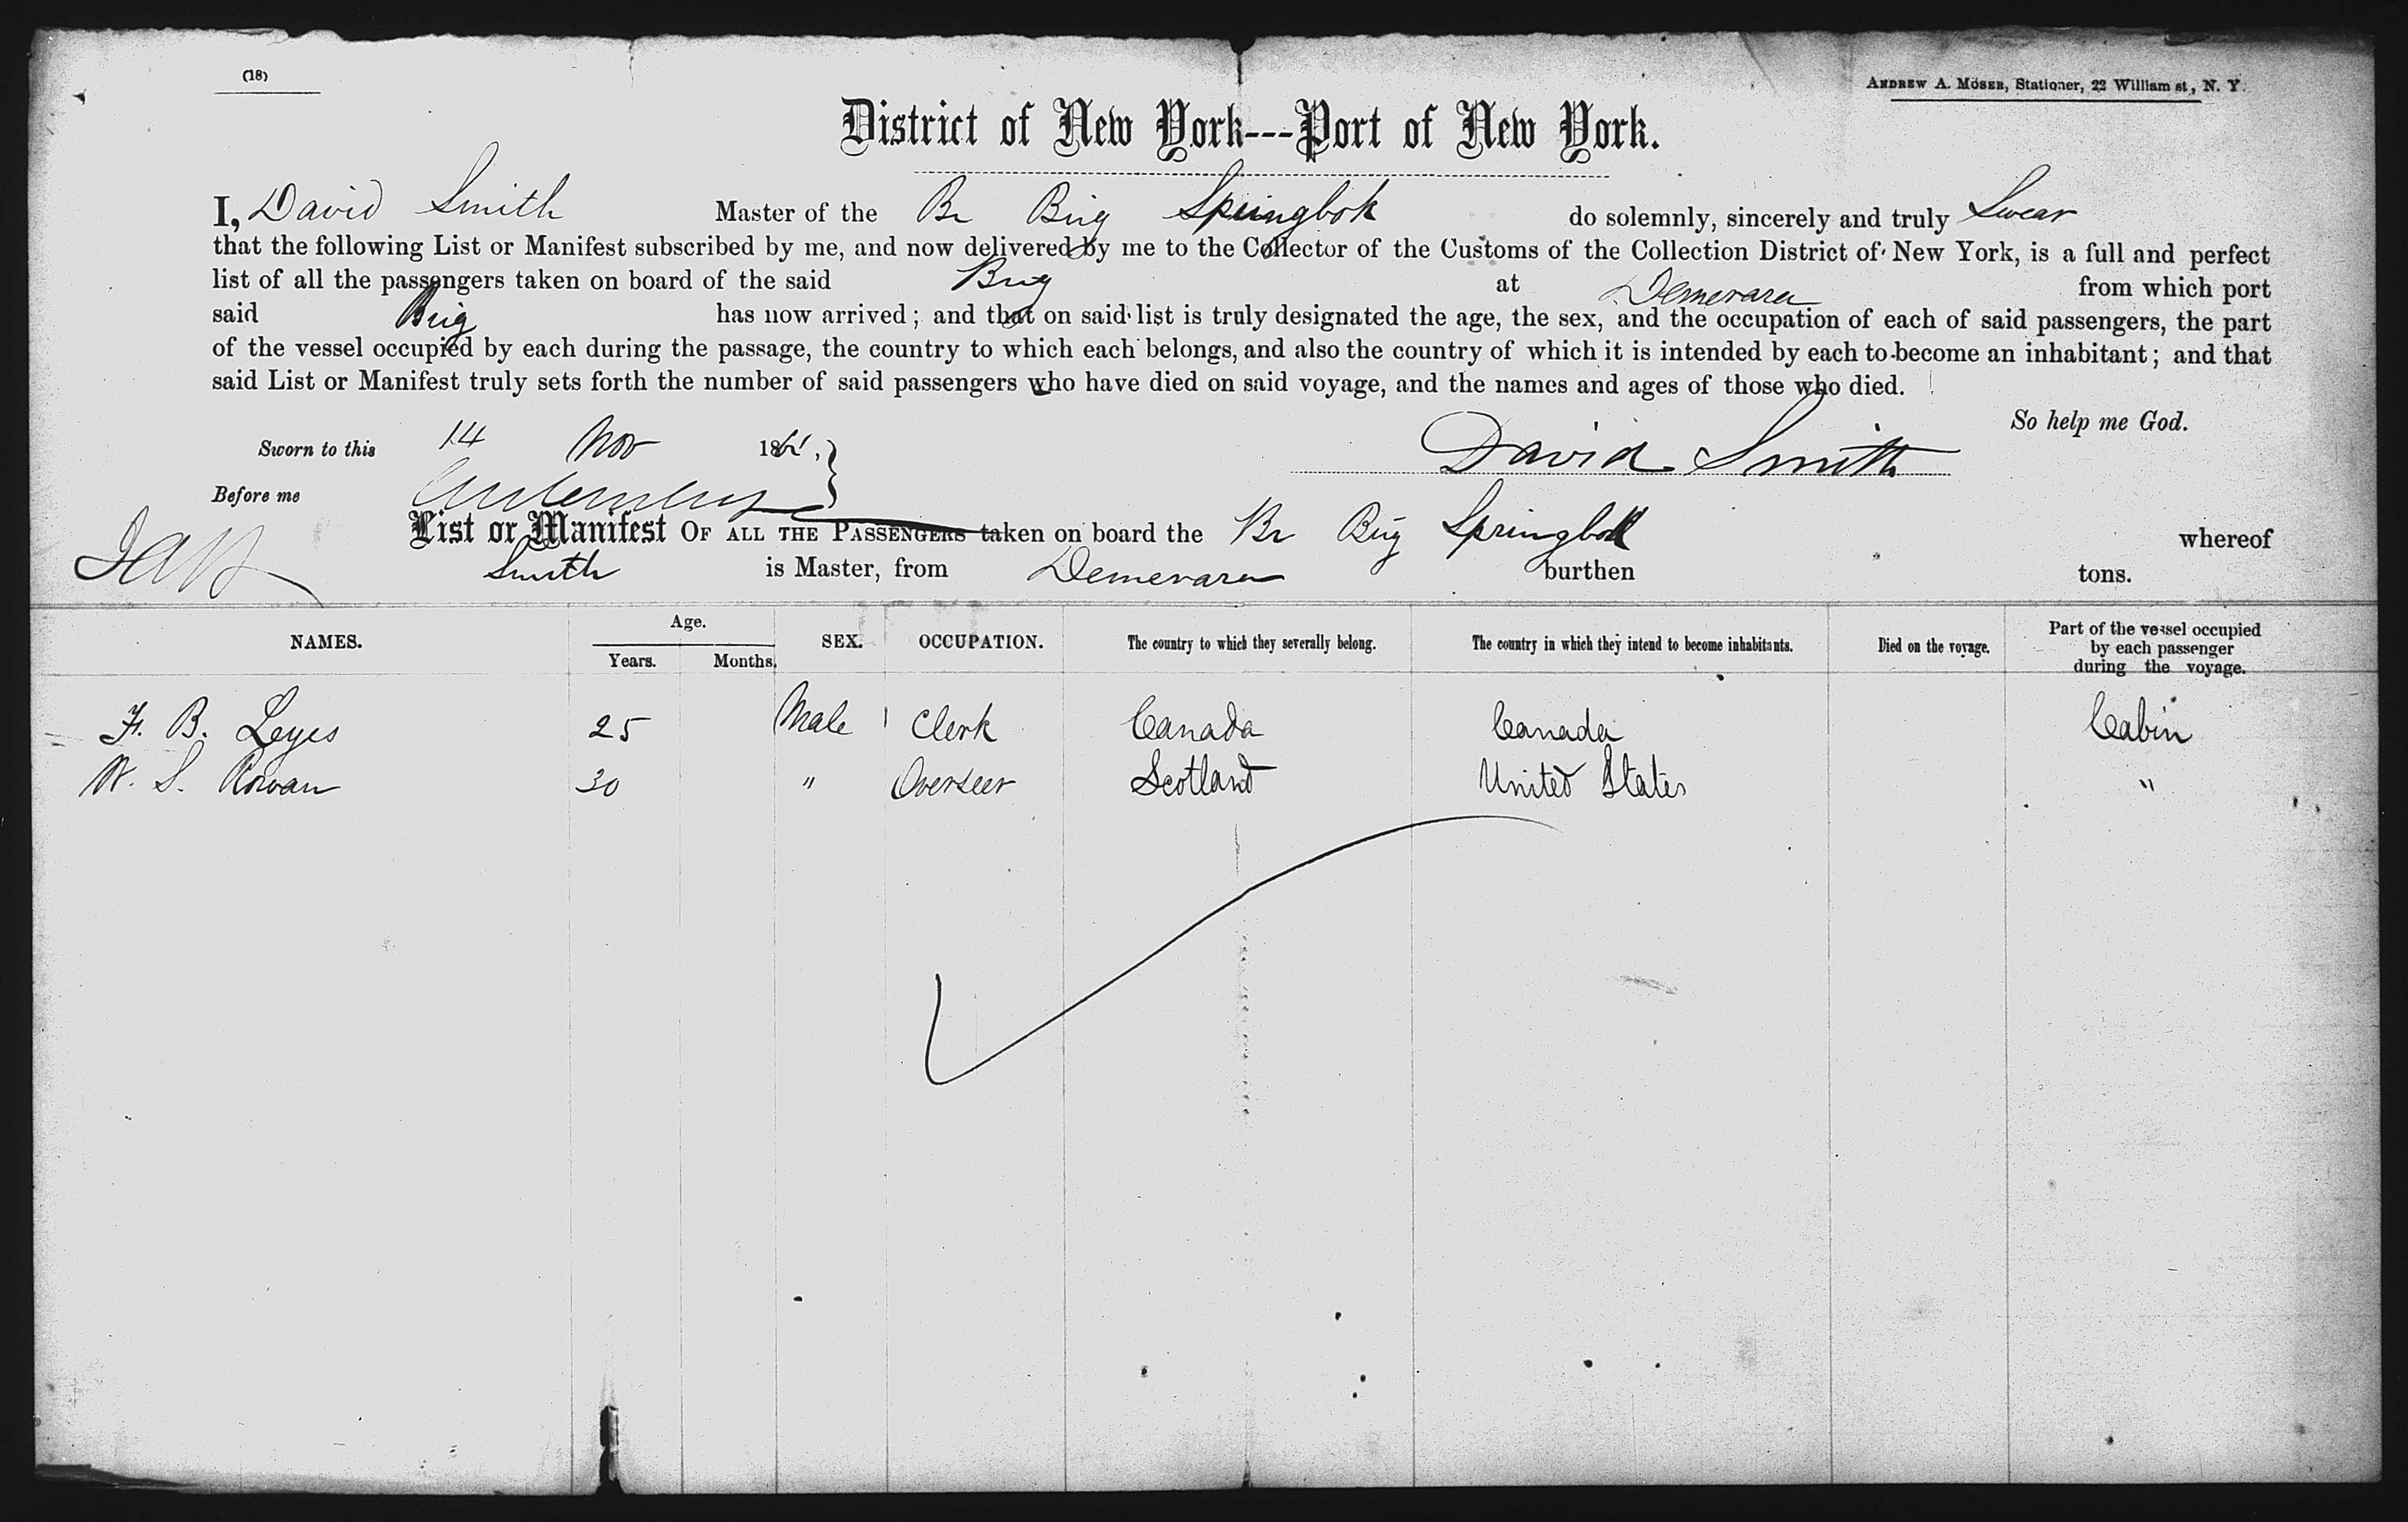 (18)
ANDREW A. MÖSER, Stationer, 22 William st, N. Y.
District of New York---Port of New York.
I, David Smith Master of the Br Brig Springbok do solemnly, sincerely and truly Swear
that the following List or Manifest subscribed by me, and now delivered by me to the Collector of the Customs of the Collection District of New York, is a full and perfect
list of all the passengers taken on board of the said Brig at Demerara from which port
said Brig has now arrived; and that on said list is truly designated the age, the sex, and the occupation of each of said passengers, the part
of the vessel occupied by each during the passage, the country to which each belongs, and also the country of which it is intended by each to become an inhabitant; and that
said List or Manifest truly sets forth the number of said passengers who have died on said voyage, and the names and ages of those who died.
So help me God.
Sworn to this 14 Nov 1861, David Smith
Before me
List or Manifest OF ALL THE PASSENGERS taken on board the Br Brig Springbok whereof
Smith is Master, from Demerara burthen tons.
NAMES. Age. Years. Months. SEX. OCCUPATION. The country to which they severally belong. The country in which they intend to become inhabitants. Died on the voyage. Part of the vessel occupied by each passenger during the voyage.
F. B. Leyes 25 Male Clerk Canada Canada Cabin
W. S. Rowan 30 " Overseer Scotland United States "